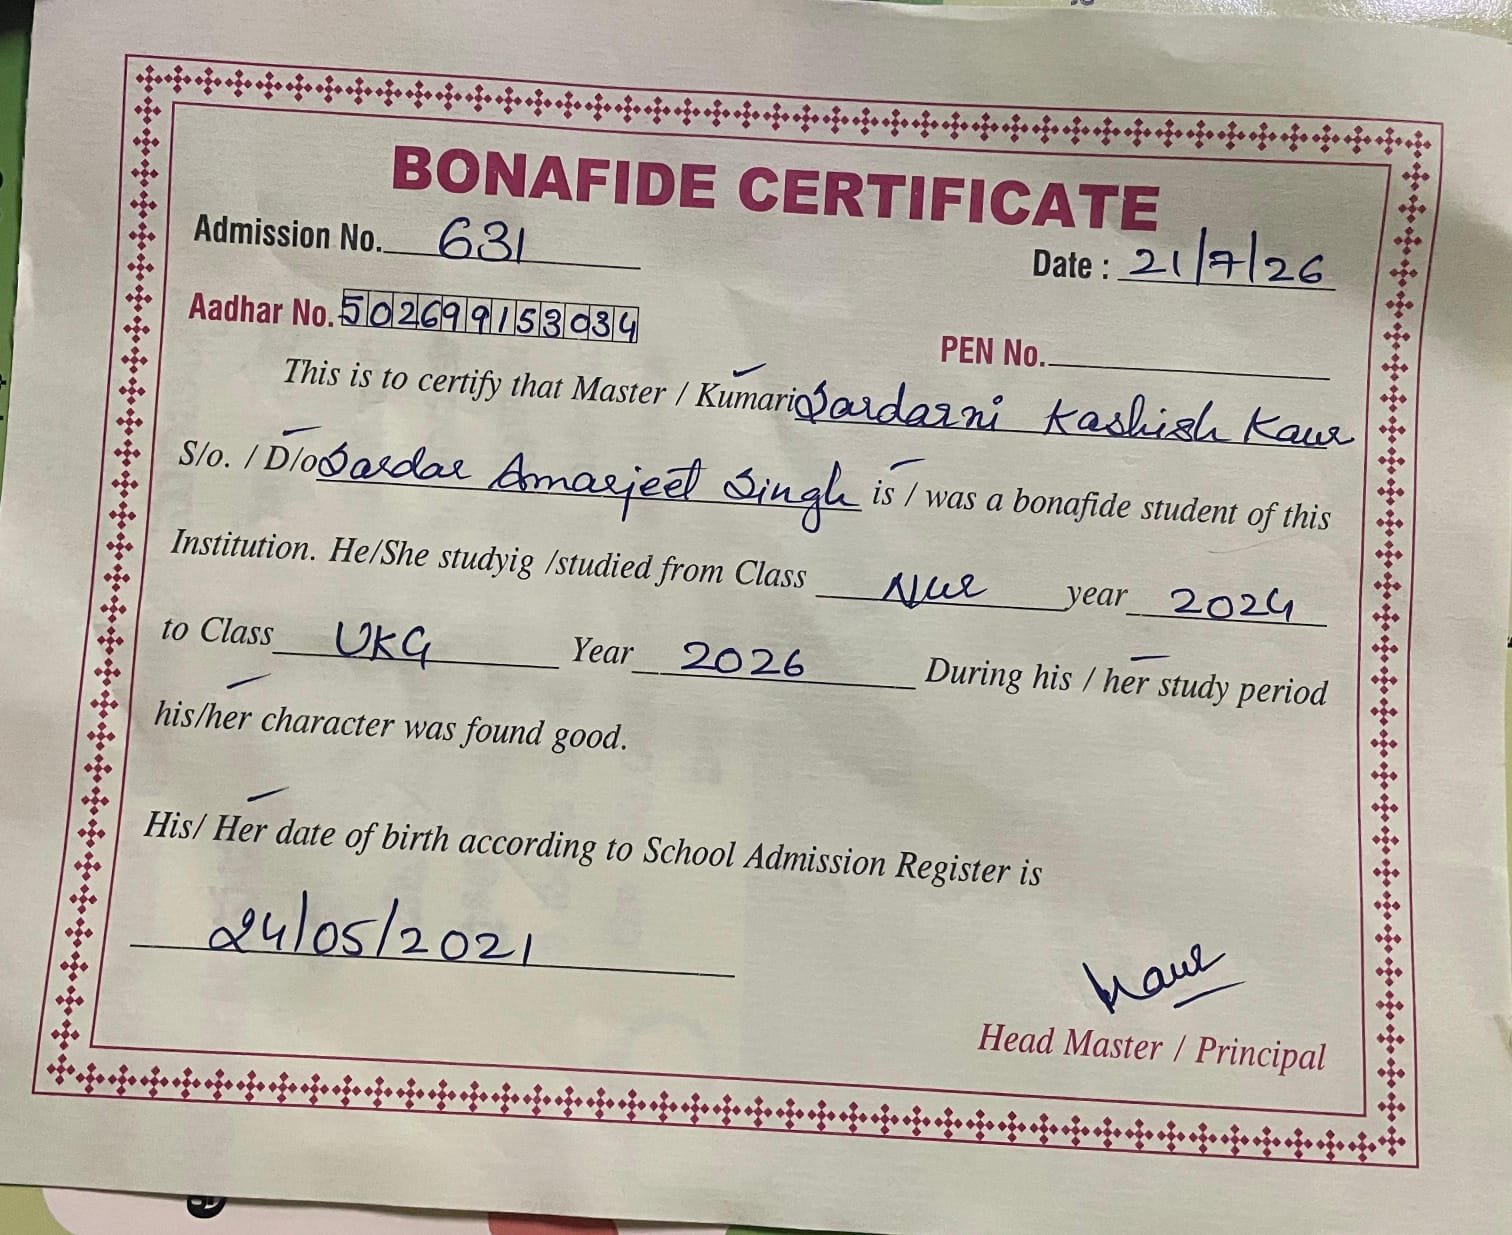 BONAFIDE CERTIFICATE
Admission No. 631
Date : 21/7/26
Aadhar No. 502699153034
PEN No.
This is to certify that Master / Kumari Sardarni Kashish Kaur
S/o. / D/o Sardar Amarjeet Singh is / was a bonafide student of this
Institution. He/She studyig /studied from Class Nur year 2024
to Class UKG Year 2026 During his / her study period
his/her character was found good.
His/ Her date of birth according to School Admission Register is
24/05/2021
Kaur
Head Master / Principal